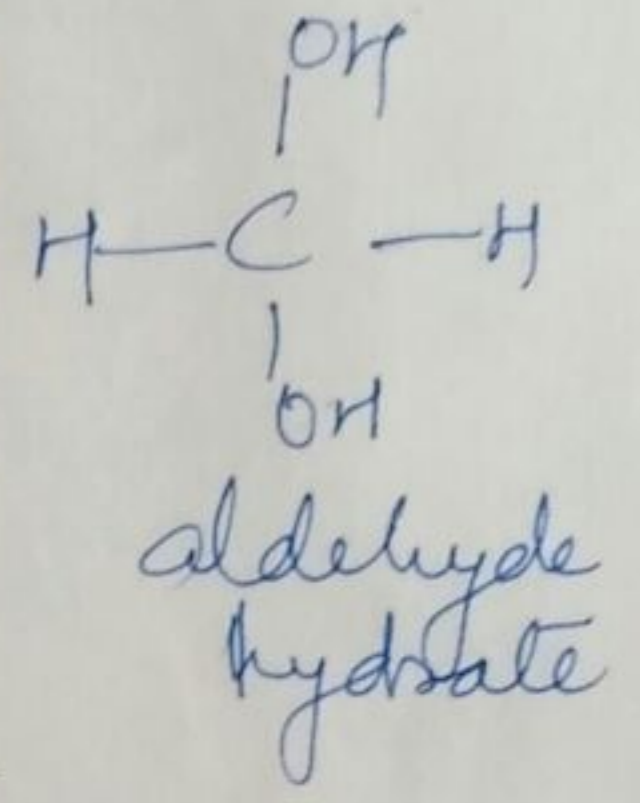 OH
H — C — H
OH
aldehyde
hydrate